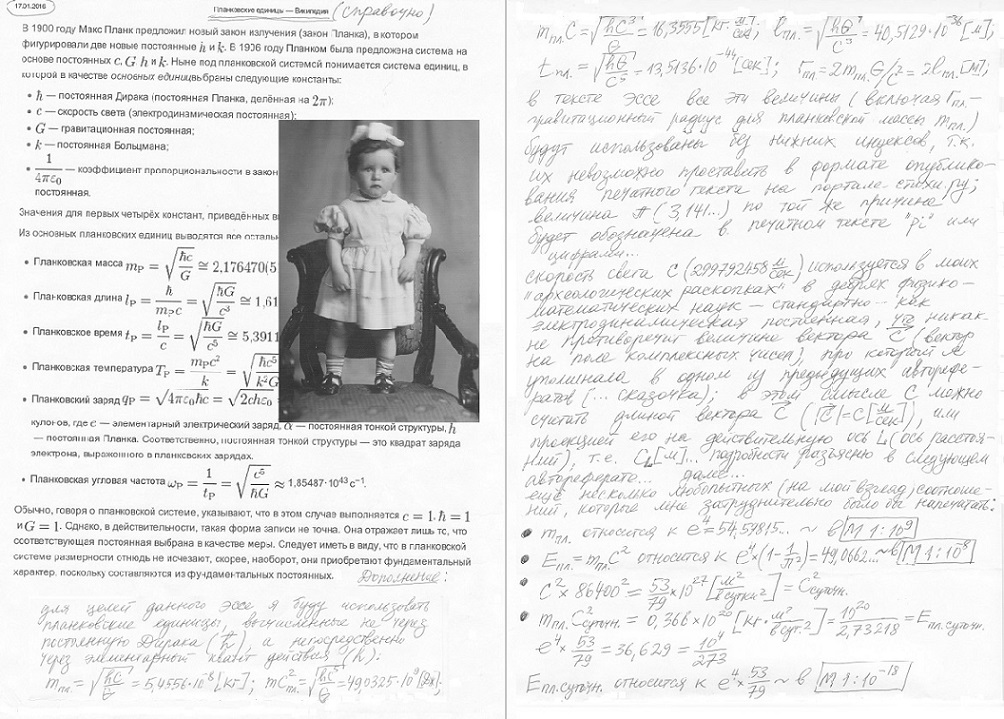 17.01.2016
Планковские единицы — Википедия (справочно)
В 1900 году Макс Планк предложил новый закон излучения (закон Планка), в котором
фигурировали две новые постоянные ℏ и k. В 1906 году Планком была предложена система на
основе постоянных c, G ℏ и k. Ныне под планковской системой понимается система единиц, в
которой в качестве основных единиц выбраны следующие константы:
• ℏ — постоянная Дирака (постоянная Планка, делённая на 2π);
• c — скорость света (электродинамическая постоянная);
• G — гравитационная постоянная;
• k — постоянная Больцмана;
• 1/4πε₀ — коэффициент пропорциональности в закон
постоянная.
Значения для первых четырёх констант, приведённых в
Из основных планковских единиц выводятся все осталь
• Планковская масса m_P = √(ℏc/G) ≅ 2,176470(5
• Планковская длина l_P = ℏ/(m_P c) = √(ℏG/c³) ≅ 1,61
• Планковское время t_P = l_P/c = √(ℏG/c⁵) ≅ 5,3911
• Планковская температура T_P = m_P c²/k = √(ℏc⁵/k²G)
• Планковский заряд q_P = √(4πε₀ℏc) = √(2chε₀) =
кулонов, где e — элементарный электрический заряд, α — постоянная тонкой структуры, h
— постоянная Планка. Соответственно, постоянная тонкой структуры — это квадрат заряда
электрона, выраженного в планковских зарядах.
• Планковская угловая частота ω_P = 1/t_P = √(c⁵/ℏG) ≈ 1,85487·10⁴³ с⁻¹.
Обычно, говоря о планковской системе, указывают, что в этом случае выполняется c = 1, ℏ = 1
и G = 1. Однако, в действительности, такая форма записи не точна. Она отражает лишь то, что
соответствующая постоянная выбрана в качестве меры. Следует иметь в виду, что в планковской
системе размерности отнюдь не исчезают, скорее, наоборот, они приобретают фундаментальный
характер, поскольку составляются из фундаментальных постоянных. Дополнение:
для целей данного эссе я буду использовать
планковские единицы, вычисленные не через
постоянную Дирака (ℏ), а непосредственно
через элементарный квант действия (h):
m пл. = √(hC/G) = 5,4556·10⁻⁸ [кг]; mC² пл. = √(hC⁵/G) = 49,0325·10⁹ [Дж];
m пл. C = √(hC³/G) = 16,3555 [кг·м/сек]; l пл. = √(hG/C³) = 40,5129·10⁻³⁶ [м];
t пл. = √(hG/C⁵) = 13,5136·10⁻⁴⁴ [сек]; r пл. = 2m пл. G/C² = 2l пл. [м];
в тексте эссе все эти величины (включая r пл.-
гравитационный радиус для планковской массы m пл.)
будут использованы без нижних индексов, т.к.
их невозможно проставить в формате опублико-
вания печатного текста на портале стихи.ру;
величина π (3,141...) по той же причине
будет обозначена в печатном тексте "pi" или
цифрами...
скорость света C (299792458 м/сек) используется в моих
"археологических раскопках" в дебрях физико-
математических наук — стандартно — как
электродинамическая постоянная, что никак
не противоречит величине вектора C (вектор
на поле комплексных чисел), про который я
упоминала в одном из предыдущих авторефе-
ратов [... сказочка]; в этом смысле C можно
считать длиной вектора C (|C| = C [м/сек]), или
проекцией его на действительную ось L (ось расстоя-
ний), т.е. C_L [м]... подробности разъясню в следующем
автореферате... далее...
ещё несколько любопытных (на мой взгляд) соотноше-
ний, которые мне затруднительно было бы напечатать:
• m пл. относится к e⁴ = 54,59815... ~ в М 1:10⁹
• E пл. = m пл. C² относится к e⁴×(1-1/π²) = 49,0662... ~ в М 1:10⁻⁸
• C² × 86400² = 53/79 × 10²⁷ [м²/в сутки²] = C² суточн.
• m пл. C² суточн. = 0,366 × 10²⁰ [кг·м²/в сут.²] = 10²⁰/2,73218 = E пл. суточн.
e⁴ × 53/79 = 36,629 = 10⁴/273
E пл. суточн. относится к e⁴ × 53/79 ~ в М 1:10⁻¹⁸